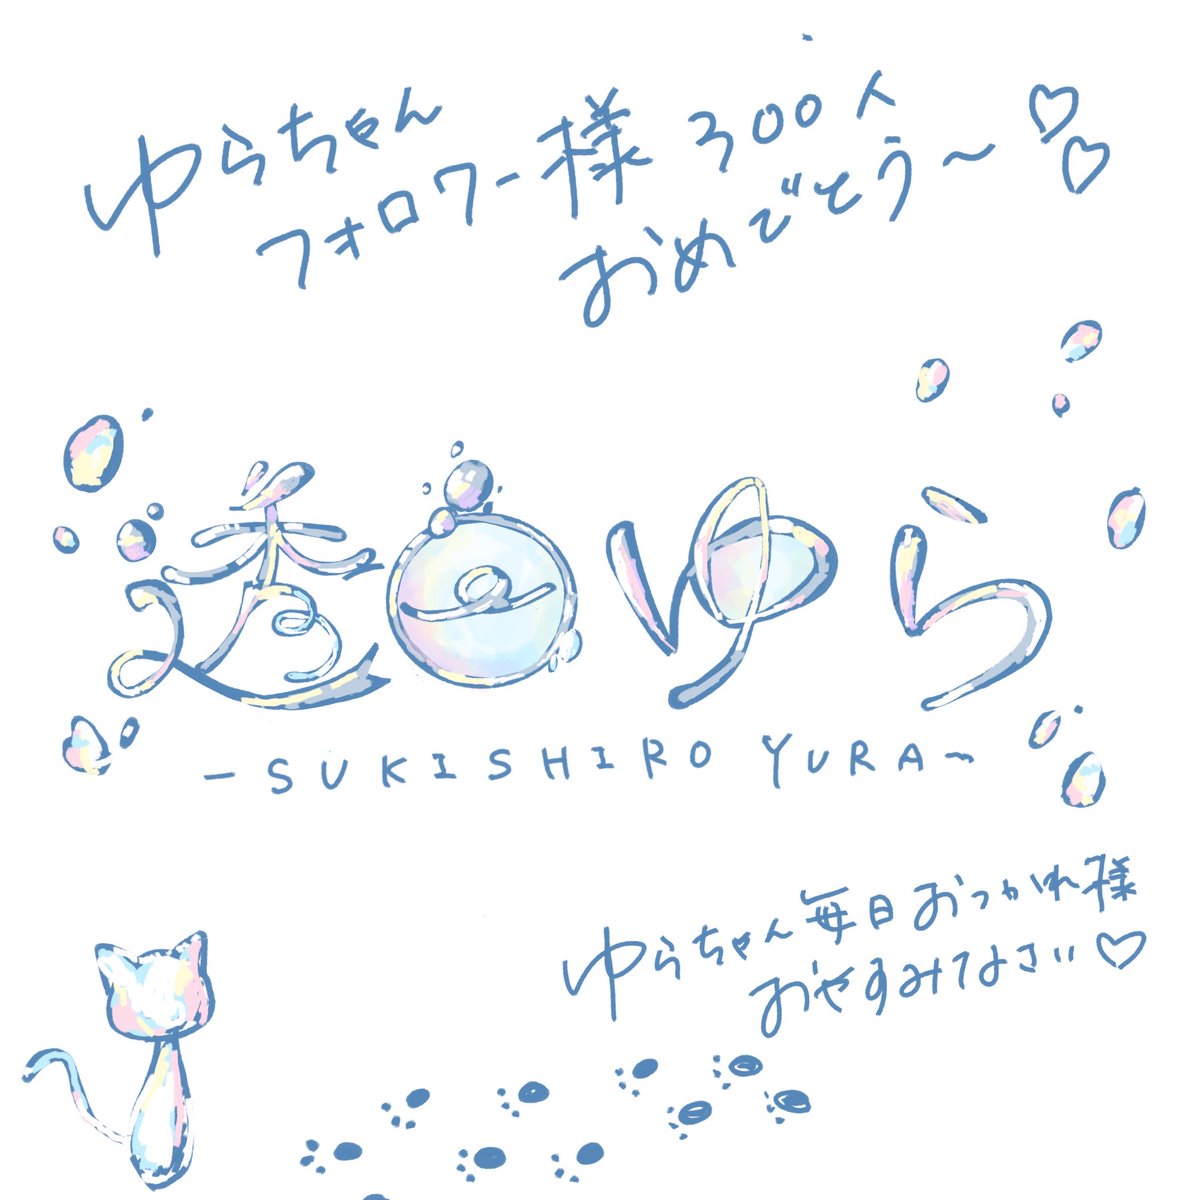 ゆらちゃん
フォロワー様300人
おめでとう〜♡♡
透白ゆら
-SUKISHIRO YURA~
ゆらちゃん毎日おつかれ様
おやすみなさい♡